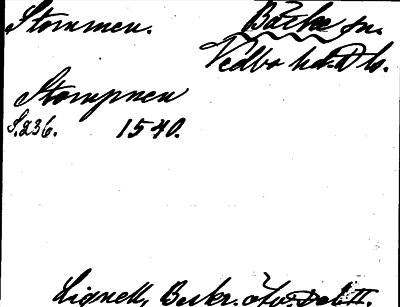 Stommen. Bäcke sn.
Vedbo hd. Dls.
Stompnen
S. 236. 1540.
Lignell, Beskr. öfv. Dal II.